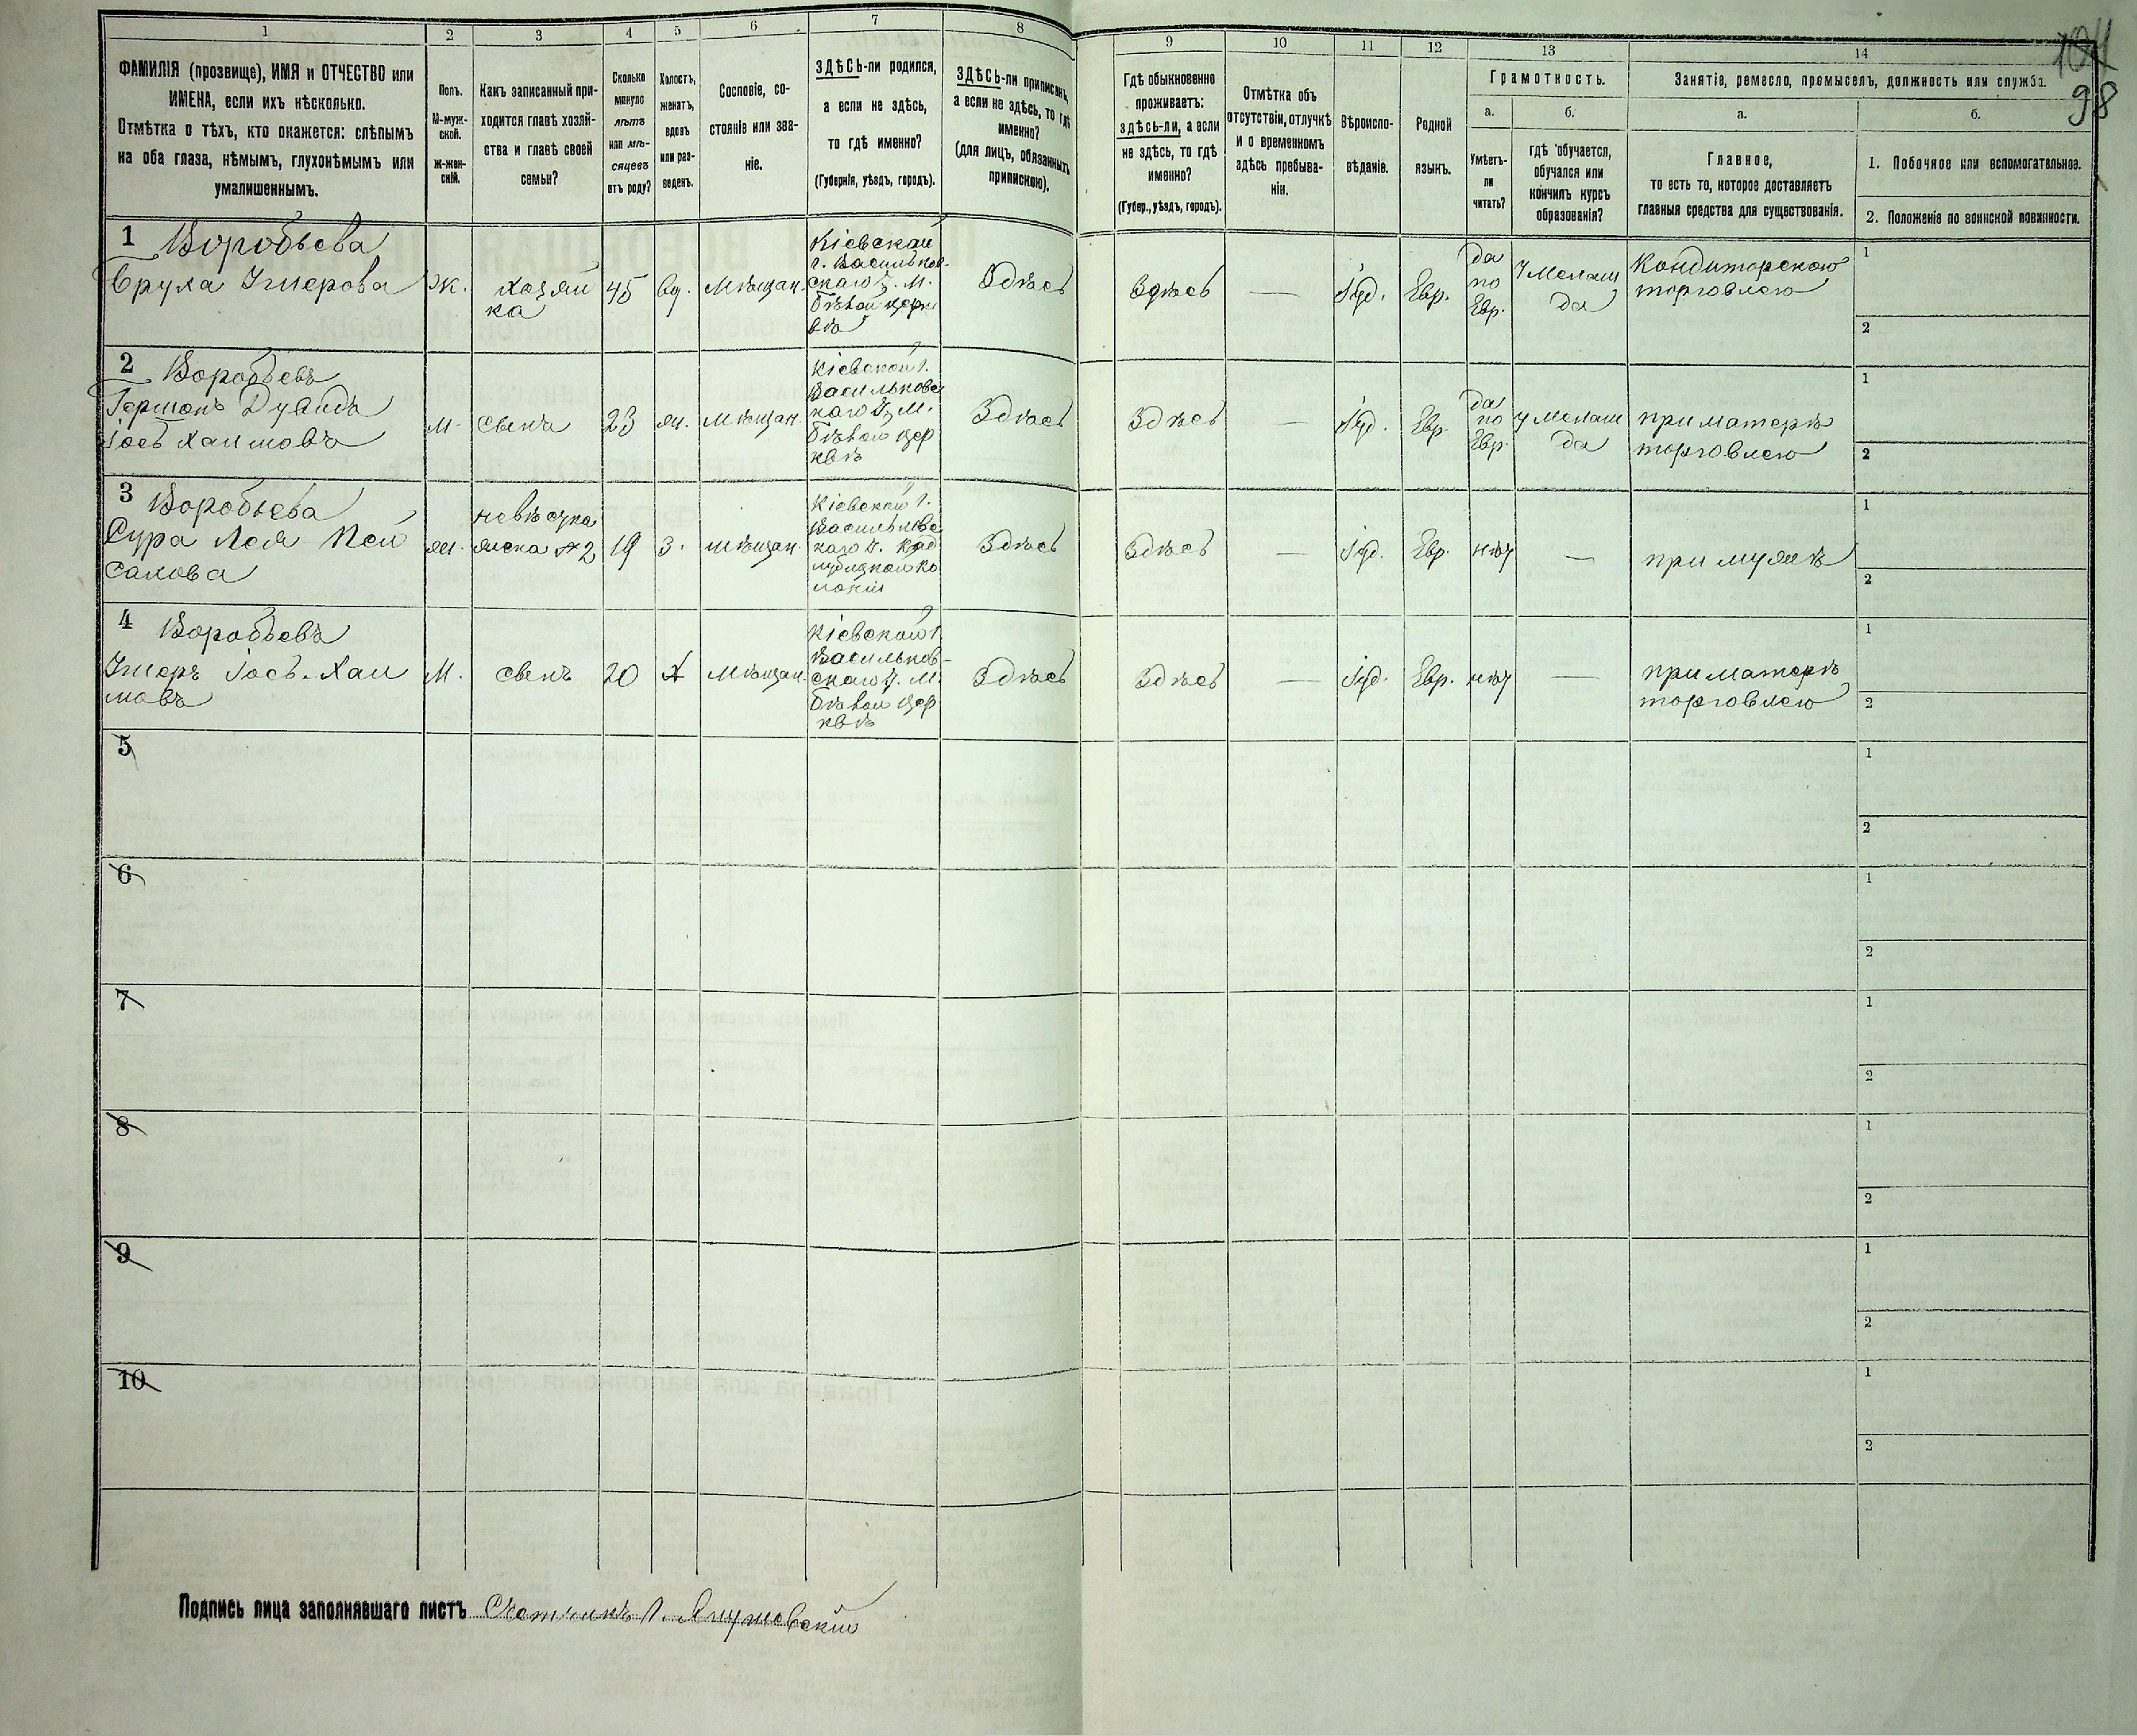 104
98
1 2 3 4 5 6 7 8 9 10 11 12 13 14
ФАМИЛІЯ (прозвище), ИМЯ и ОТЧЕСТВО или
ИМЕНА, если ихъ нѣсколько.
Отмѣтка о тѣхъ, кто окажется: слѣпымъ
на оба глаза, нѣмымъ, глухонѣмымъ или
умалишеннымъ.
Полъ.
М-муж-
ской.
ж-жен-
скій.
Какъ записанный при-
ходится главѣ хозяй-
ства и главѣ своей
семьи?
Сколько
минуло
лѣтъ
или мѣ-
сяцевъ
отъ роду?
Холостъ,
женатъ,
вдовъ
или раз-
веденъ.
Сословіе, со-
стояніе или зва-
ніе.
ЗДѢСЬ-ли родился,
а если не здѣсь,
то гдѣ именно?
(Губернія, уѣздъ, городъ).
ЗДѢСЬ-ли приписанъ,
а если не здѣсь, то гдѣ
именно?
(для лицъ, обязанныхъ
припискою).
Гдѣ обыкновенно
проживаетъ:
здѣсь-ли, а если
не здѣсь, то гдѣ
именно?
(Губер., уѣздъ, городъ).
Отмѣтка объ
отсутствіи, отлучкѣ
и о временномъ
здѣсь пребыва-
ніи.
Вѣроиспо-
вѣданіе.
Родной
языкъ.
Грамотность.
а.
Умѣетъ-
ли
читать?
б.
гдѣ обучается,
обучался или
кончилъ курсъ
образованія?
Занятіе, ремесло, промыселъ, должность или служба.
а.
Главное,
то есть то, которое доставляетъ
главныя средства для существованія.
б.
1. Побочное или вспомогательное.
2. Положеніе по воинской повинности.
1 Воробьева
Брула Имерова
Ж.
хозяй
ка
45
вд.
Мѣщан.
Кіевской
г. Васильков-
скаго у. м.
Бѣлой церк
вѣ
Здѣсь
Здѣсь
—
Іуд.
Евр.
да
по
Евр.
У Мелам
да
Кондиторскою
торговлею
1
2
2 Воробьевъ
Германъ Дувидъ
Іосъ Хаимовъ
М.
сынъ
23
ж.
Мѣщан.
Кіевской г.
Васильковс
каго у. М.
Бѣлой цер
квѣ
Здѣсь
Здѣсь
—
Іуд.
Евр.
да
по
Евр.
у Мелам
да
при матери
торговлею
1
2
3 Воробьева
Сура Лея Пей
сакова
ж.
невѣстка
жена № 2
19
З.
мѣщан.
Кіевской г.
Васильковс
каго у.
колоніи
Здѣсь
Здѣсь
—
Іуд.
Евр.
нѣт
—
при мужѣ
1
2
4 Воробьевъ
Имеръ Іось-Хаи
мовъ
М.
сынъ
20
Х
Мѣщан.
Кіевской г.
Васильков-
скаго у. М.
Бѣлой цер
квѣ
Здѣсь
Здѣсь
—
Іуд.
Евр.
нѣт
—
при матерѣ
торговлею
1
2
5
1
2
6
1
2
7
1
2
8
1
2
9
1
2
10
1
2
Подпись лица заполнявшаго листъ Счетчикъ